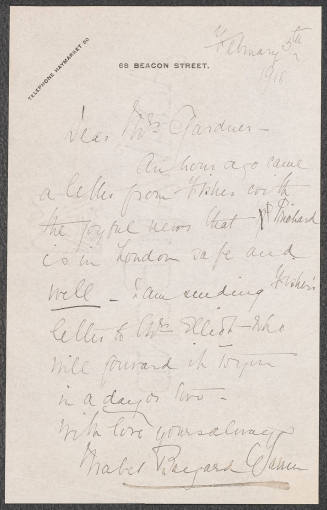 TELEPHONE HAYMARKET 80
68 BEACON STREET.
February 5th
1918
Dear Mrs Gardner -
An hour ago came
a letter from Fisher with
the joyful news that Richard
is in London safe and
well - I am sending Fisher's
letter to Mrs Elliott - who
will forward it to you
in a day or two -
With love yours always
Mabel Bayard Warren